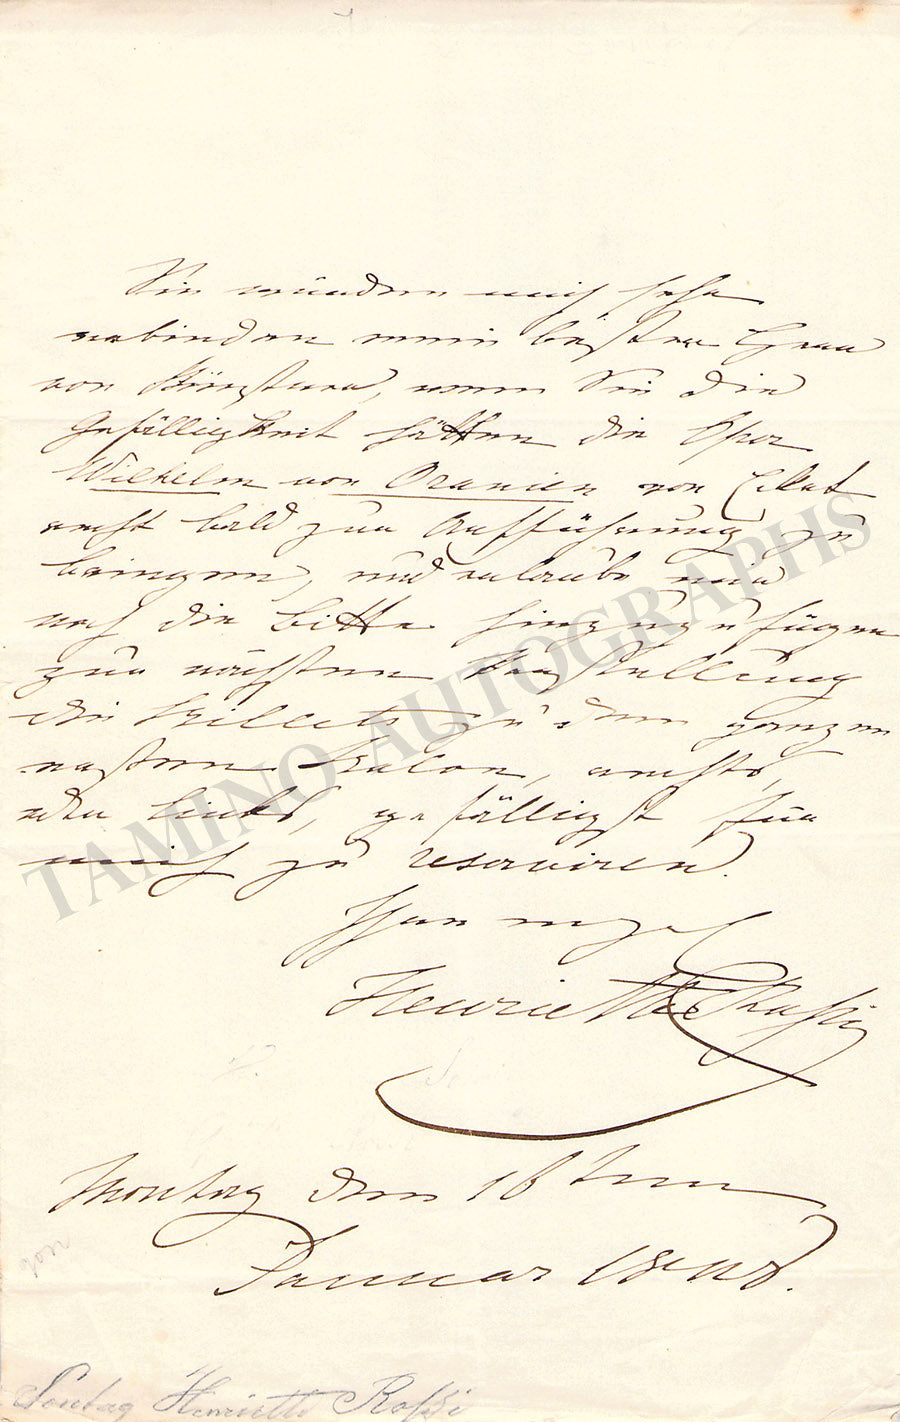 Sie würden mich sehr
verbinden mein bester Herr
von Küstner, wenn Sie die
Gefälligkeit hätten die Oper
Wilhelm von Oranien von Eckert
recht bald zur Aufführung zu
bringen, und erlaube mir
noch die Bitte hinzuzufügen
zur nächsten Vorstellung
die Billets zu dem ganzen
ersten Balcon, rechts,
oder links, gefälligst für
mich zu reserviren.
Henriette Rossi
Montag den 18ten
Januar 184
Sontag Henriette Rossi
von
TAMINO AUTOGRAPHS